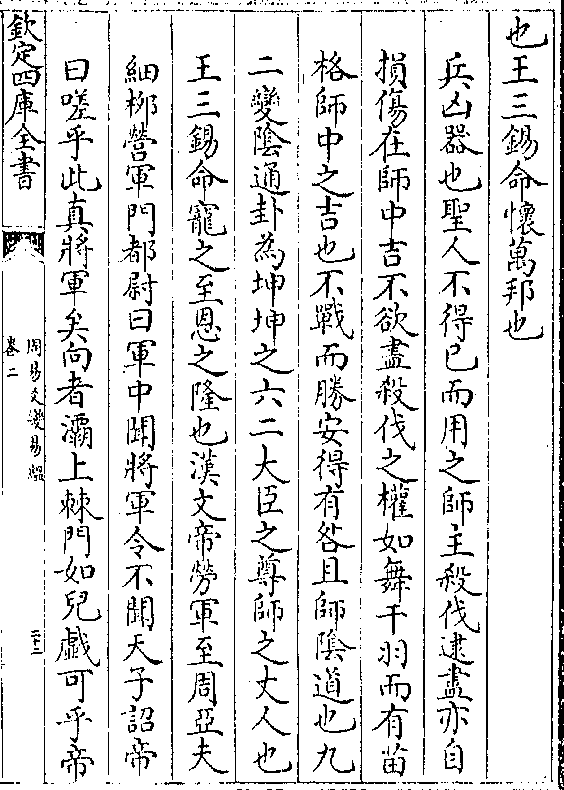 也王三錫命懷萬邦也
兵凶器也聖人不得已而用之師主殺伐逮盡亦自
損傷在師中吉不欲盡殺伐之權如舞干羽而有苗
格師中之吉也不戰而勝安得有咎且師陰道也九
二變陰通卦為坤坤之六二大臣之尊師之丈人也
王三錫命寵之至恩之隆也漢文帝勞軍至周亞夫
細栁營軍門都尉曰軍中聞將軍令不聞天子詔帝
曰嗟乎此真將軍矣向者灞上棘門如兒戱可乎帝
欽定四庫全書
周易爻變易緼
卷二
二十三